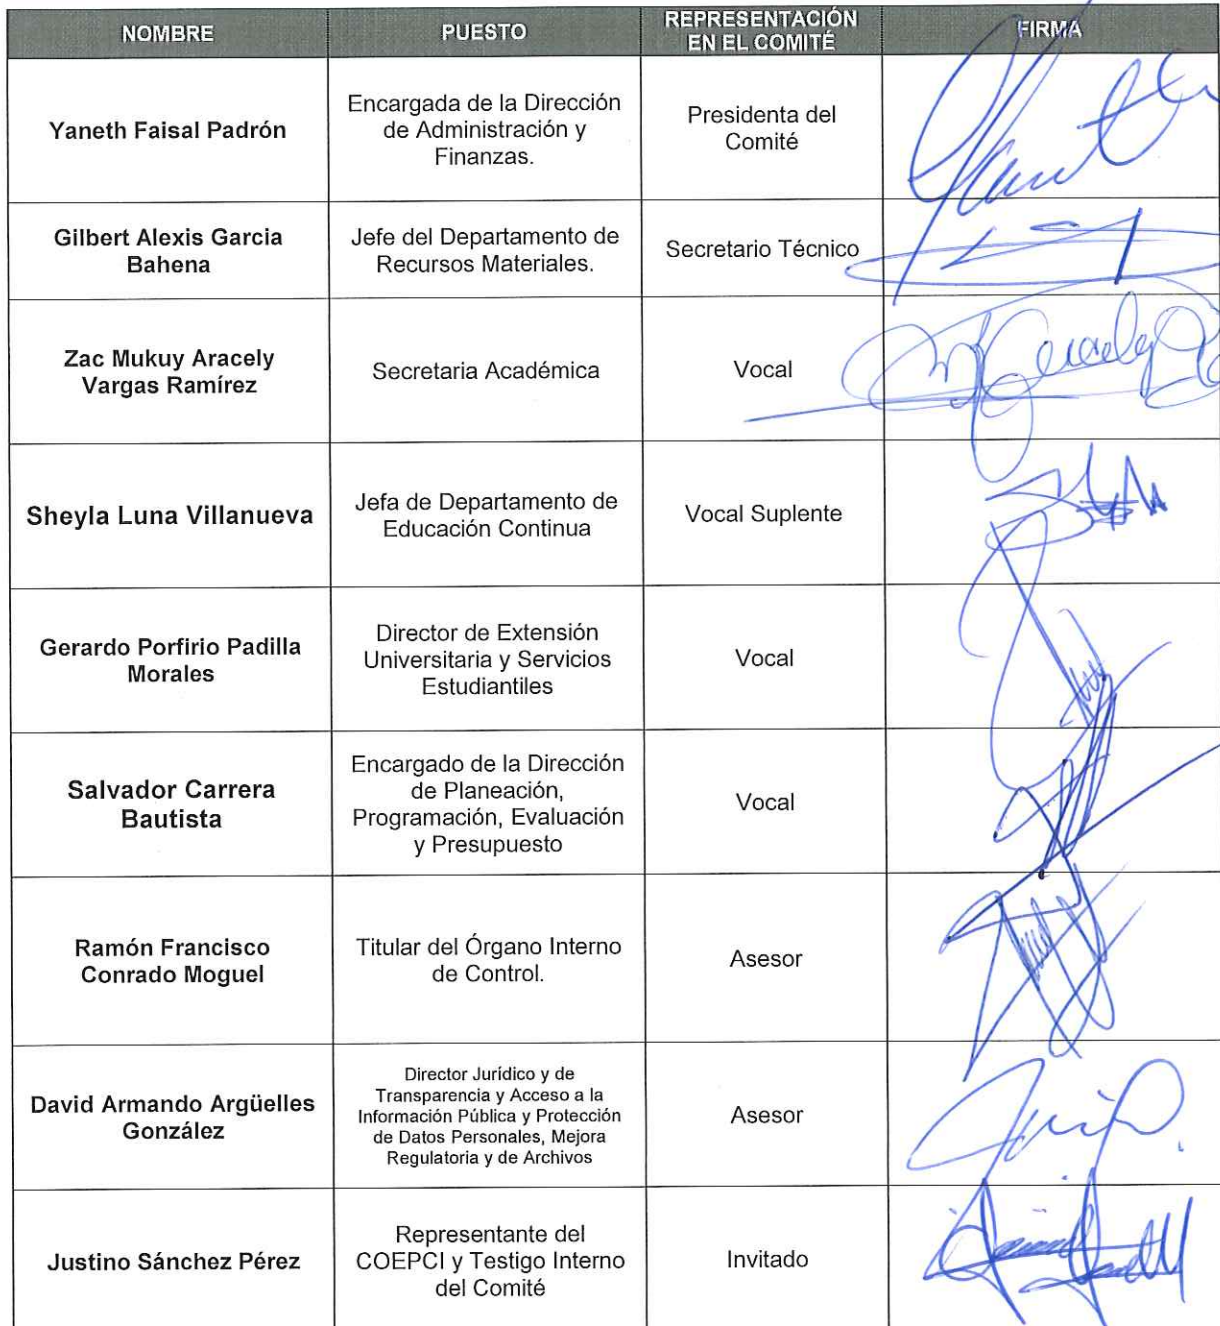 NOMBRE
PUESTO
REPRESENTACIÓN
EN EL COMITÉ
FIRMA
Yaneth Faisal Padrón
Encargada de la Dirección
de Administración y
Finanzas.
Presidenta del
Comité
Gilbert Alexis Garcia
Bahena
Jefe del Departamento de
Recursos Materiales.
Secretario Técnico
Zac Mukuy Aracely
Vargas Ramírez
Secretaria Académica
Vocal
Sheyla Luna Villanueva
Jefa de Departamento de
Educación Continua
Vocal Suplente
Gerardo Porfirio Padilla
Morales
Director de Extensión
Universitaria y Servicios
Estudiantiles
Vocal
Salvador Carrera
Bautista
Encargado de la Dirección
de Planeación,
Programación, Evaluación
y Presupuesto
Vocal
Ramón Francisco
Conrado Moguel
Titular del Órgano Interno
de Control.
Asesor
David Armando Argüelles
González
Director Jurídico y de
Transparencia y Acceso a la
Información Pública y Protección
de Datos Personales, Mejora
Regulatoria y de Archivos
Asesor
Justino Sánchez Pérez
Representante del
COEPCI y Testigo Interno
del Comité
Invitado